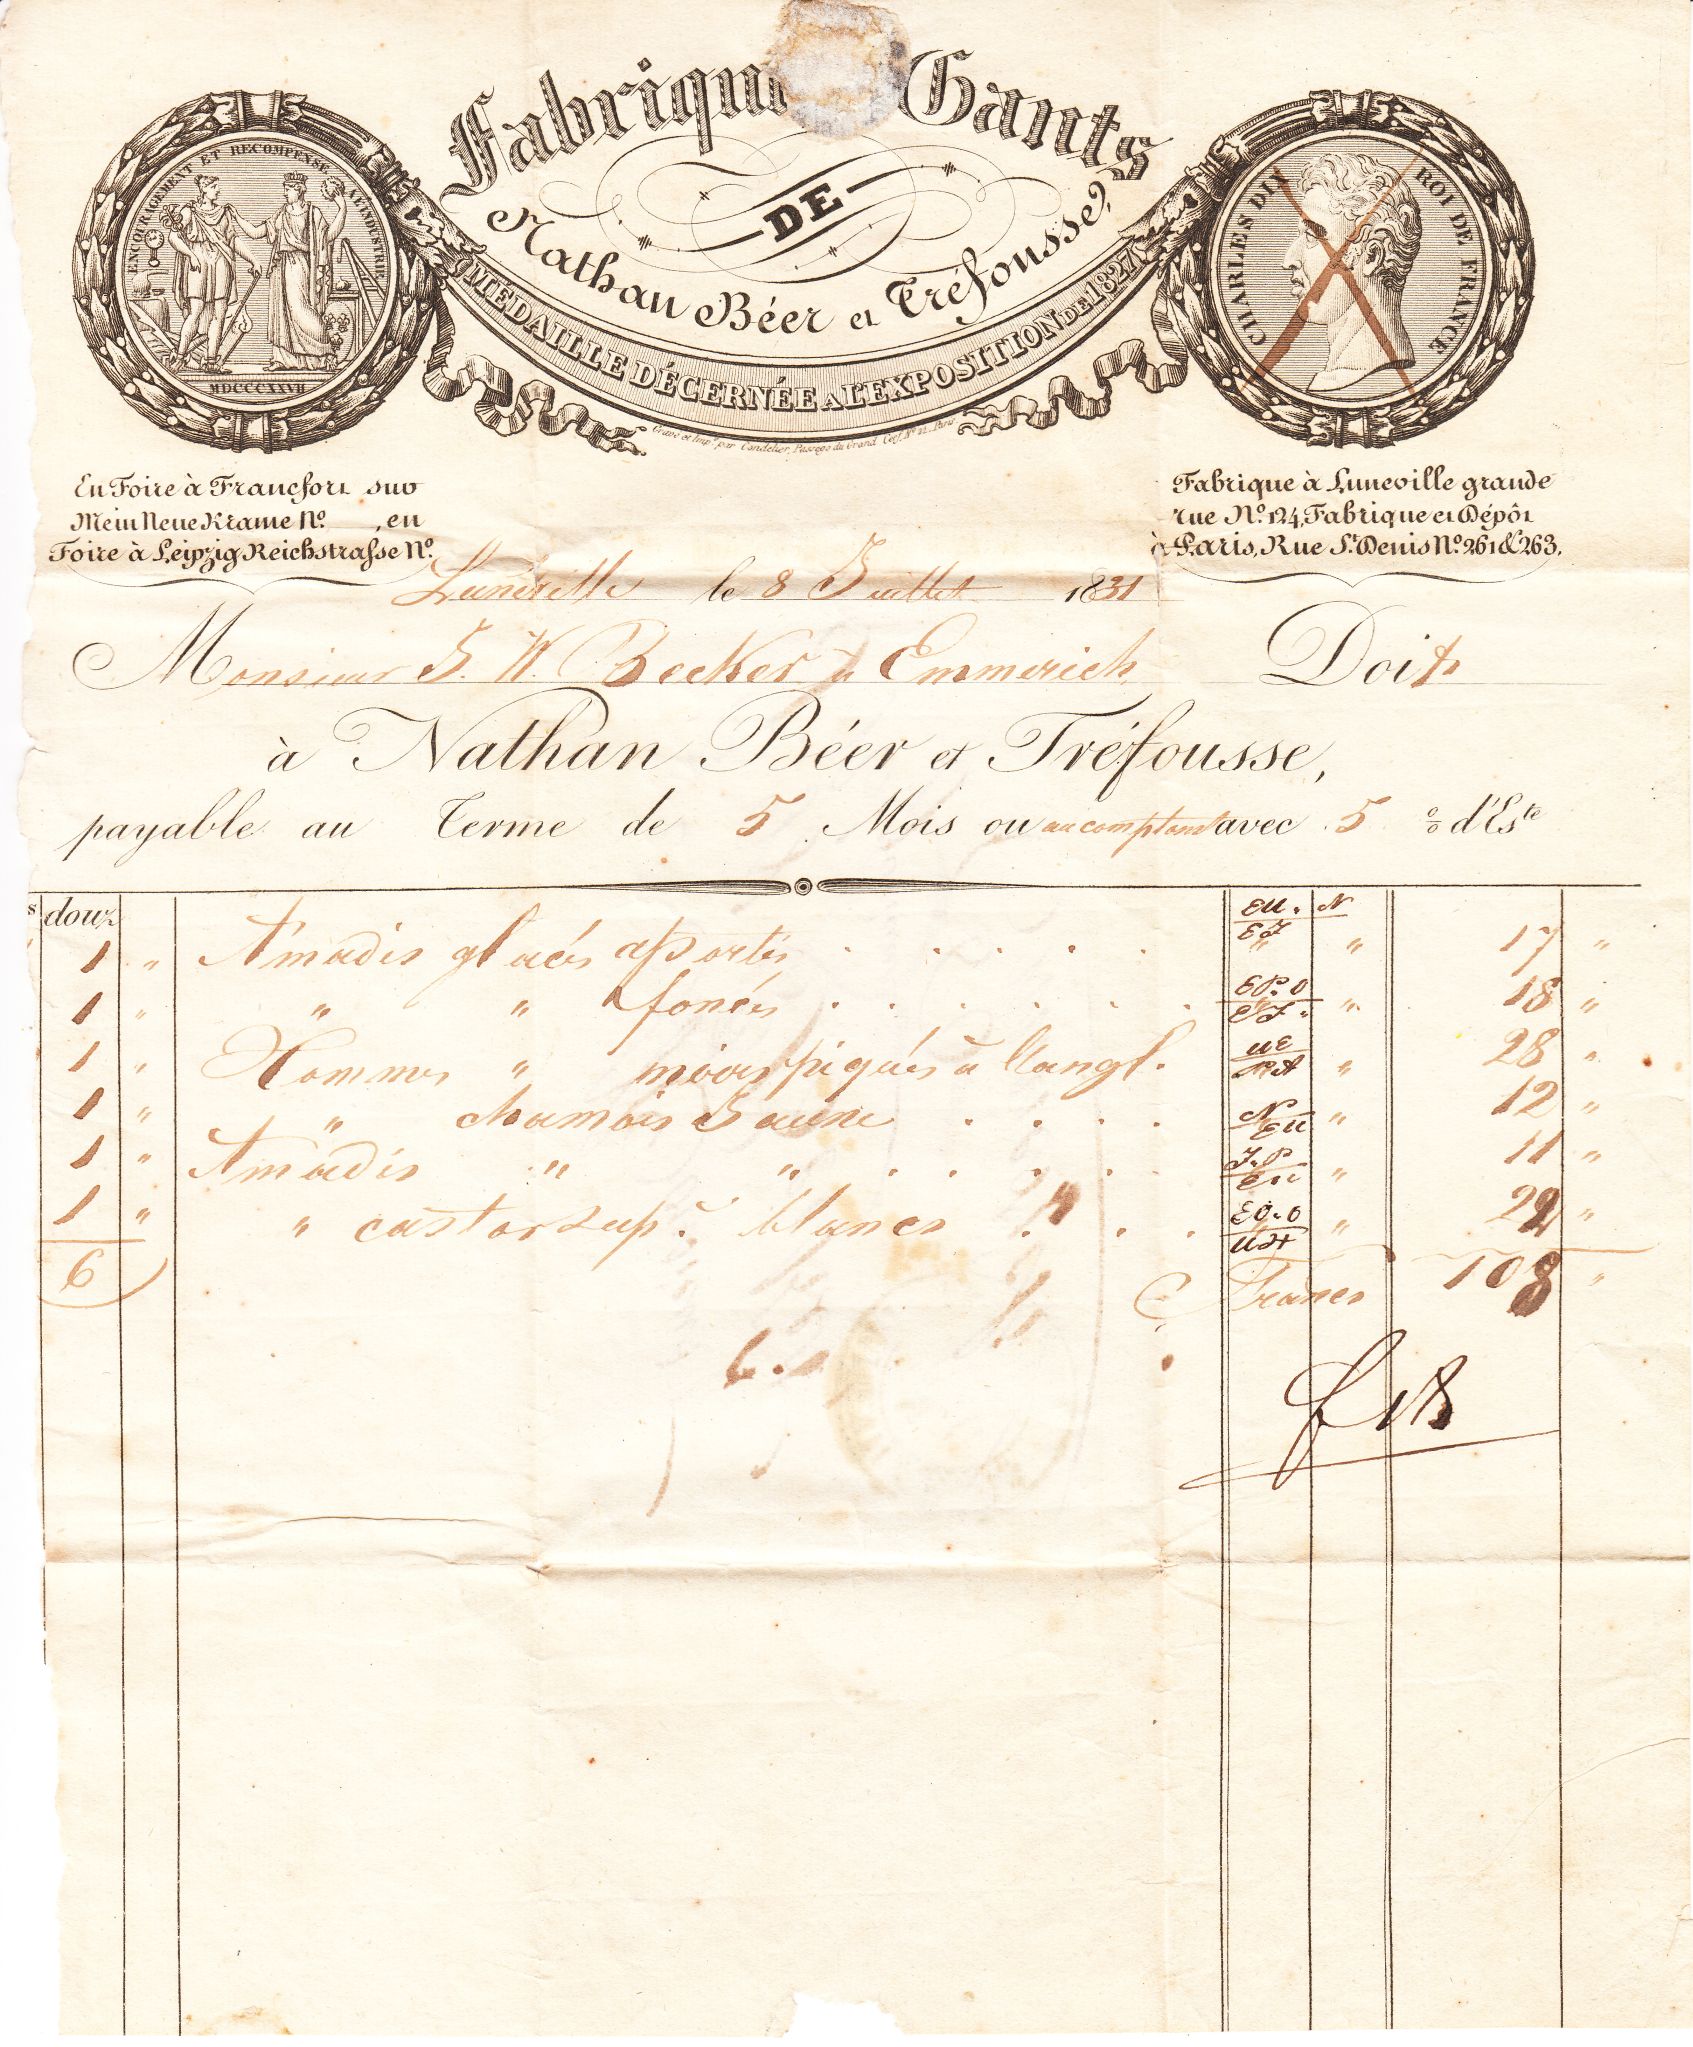 Fabrique Gants
DE
Nathan Béer et Tréfousse
MÉDAILLE DÉCERNÉE A L'EXPOSITION DE 1827
ENCOURAGEMENT ET RECOMPENSE A L'INDUSTRIE
MDCCCXXVII
CHARLES DIX ROI DE FRANCE
Gravé et Impé. par Candelier, Passage du Grand Cerf, No. Paris
En Foire à Francfort sur
Mein Neue Krame No. , en
Foire à Leipzig Reichstrasse No.
Fabrique à Luneville grande
rue No. 124, Fabrique et Dépôt
à Paris, Rue St. Denis No. 261 & 263.
Lunéville le 8 Juillet 1831
Monsieur J. W. Becker à Emmerich Doit
à Nathan Béer et Tréfousse,
payable au Terme de 5 Mois ou au comptant avec 5 % d'Es te
s douz
1 " Amadis glacés assortis . . . . . EU. N / EJ " " 17 "
1 " " " foncés . . . . . . EP.O / EJ. " 18 "
1 " Hommes " noirs piqués à l'angl. UE / PA " 28 "
1 " " chamois Jaune . . . . N / EU " 12 "
1 " Amadis " " . . . . . J.P / EU " 11 "
1 " " castor sup. blancs . . . EO.O / " 22 "
6 Francs 108 "